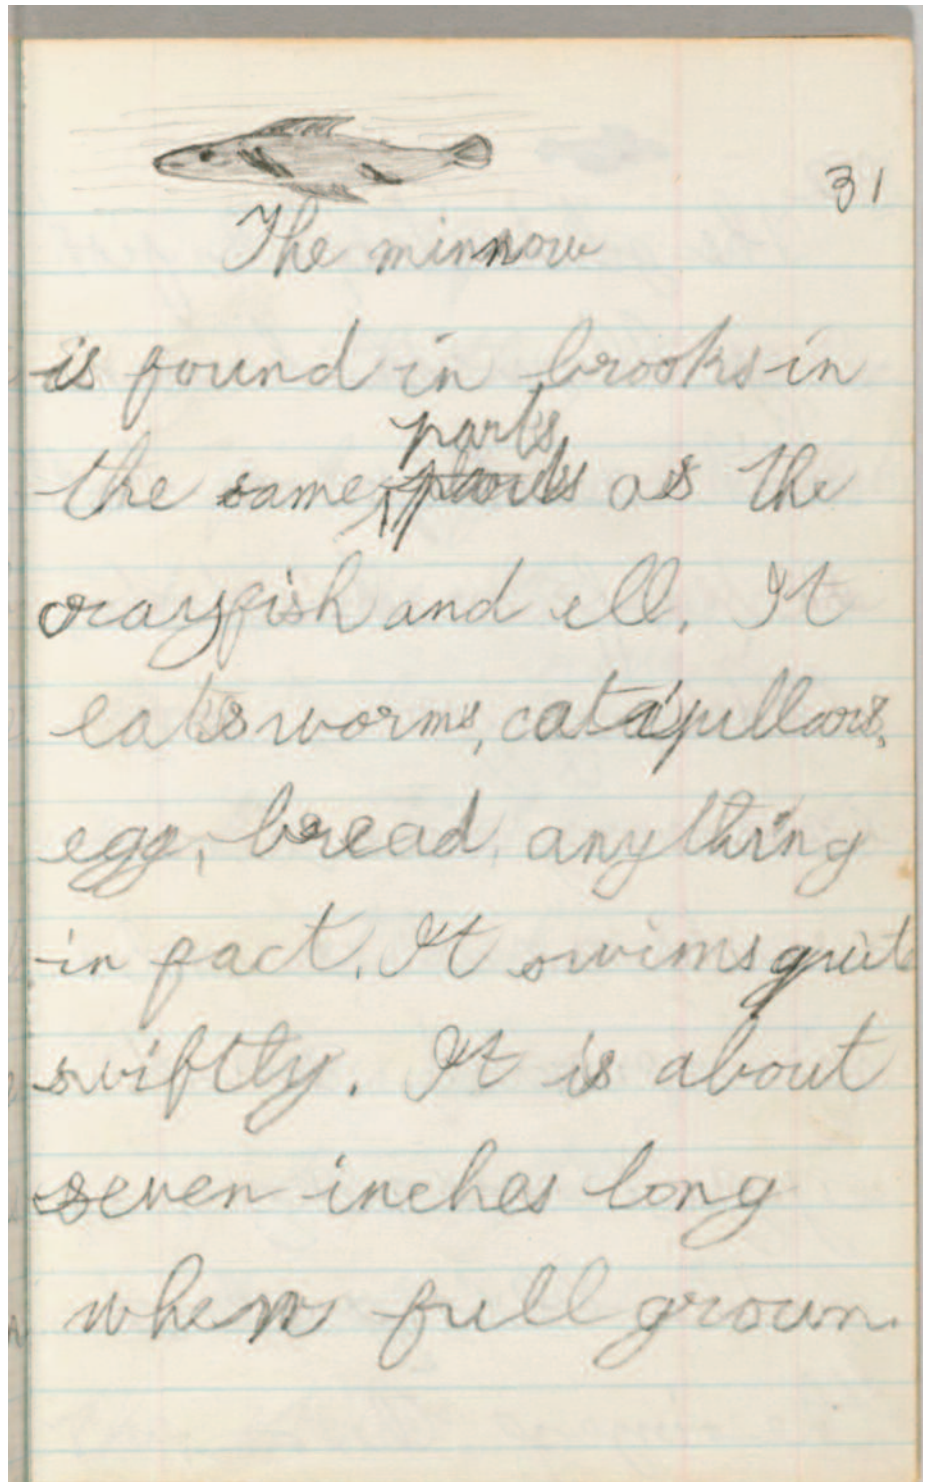 31
The minnow
is found in brooks in
parts
the same as the
crayfish and ell. It
eats worms, catapullars,
egg, bread, anything
in fact. It swims quite
swiftly. It is about
seven inches long
when full grown.